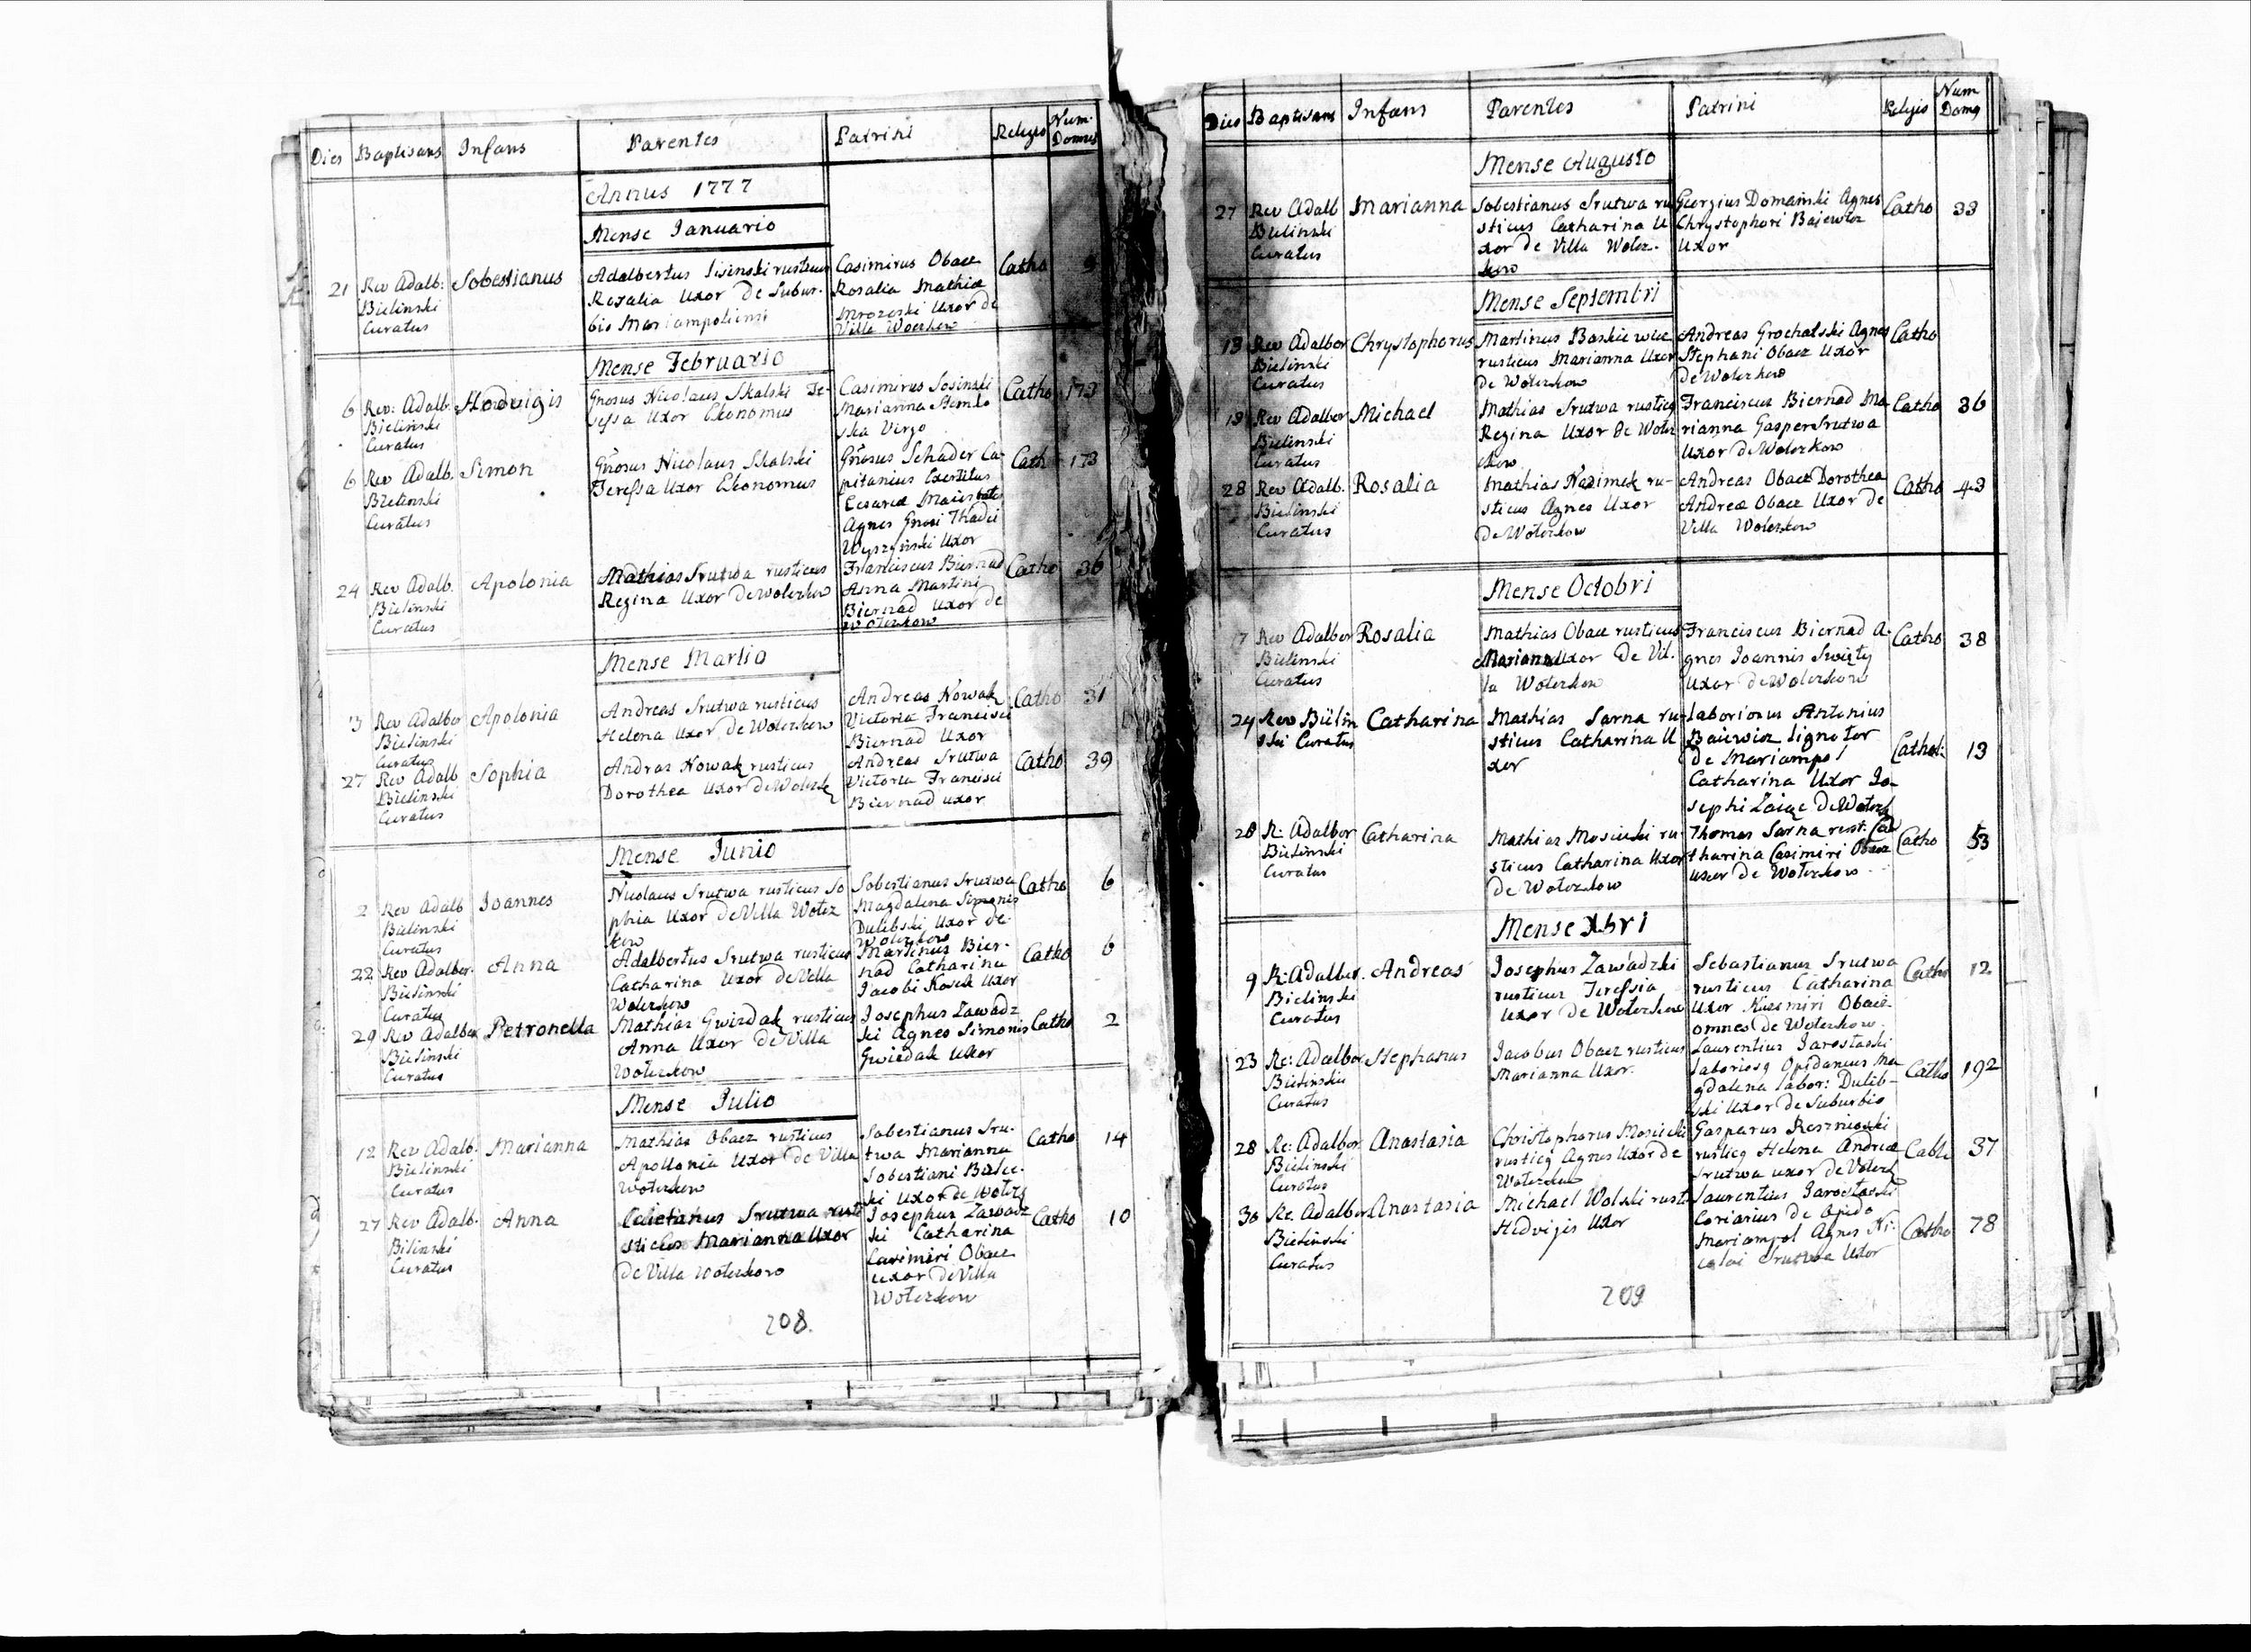 Dies Baptisans Infans Parentes Patrini Religio Num: Domus
Annus 1777
Mense Januario
21 Rev Adalb: Bielinski Curatus
Sobestianus
Adalbertus Sisinski rusticus
Rosalia Uxor de Subur-
bio Mariampoliensi
Casimirus Obacz
Rosalia Mathiæ
Mrozeski Uxor de
Villa Woczkow
Catho 9
Mense Februario
6 Rev: Adalb. Bieliński Curatus
Hedvigis
Gnosus Nicolaus Skalski Te-
ressa Uxor Ekonomus
Casimirus Sosinski
Marianna
ska Virgo
Catho 173
6 Rev Adalb. Bielinski Curatus
Simon
Gñosus Nicolaus Skalski
Teressa Uxor Ekonomus
Gñosus Schader Ca-
pitanius Exertitus
Cesareæ Maiestatis
Agnes Gnosi Thadei
Wyszynski Uxor
Cath 173
24 Rev Adalb. Bielinski Curatus
Apolonia
Mathias Srutwa rusticus
Regina Uxor de Woloszkow
Franciscus Biernad
Anna Martini
Biernad Uxor de
Woloszkow
Catho 36
Mense Martio
13 Rev Adalber Bielinski Curatus
Apolonia
Andreas Srutwa rusticus
Helena Uxor de Woloszkow
Andreas Nowak
Victoria Francisci
Biernad Uxor
Catho 31
27 Rev Adalb Bielinski Curatus
Sophia
Andras Nowak rusticus
Dorothea Uxor de Woloszk
Andreas Srutwa
Victoria Francisci
Biernad uxor
Catho 39
Mense Junio
2 Rev Adalb Bielinski Curatus
Ioannes
Nicolaus Srutwa rusticus So
phia Uxor de Villa Wolosz
kow
Sobestianus Srutwa
Magdalena Simonis
Dulibski Uxor de
Woloszkow
Catho 6
22 Rev Adalber. Bielinski Curatus
Anna
Adalbertus Srutwa rusticus
Catharina Uxor de Villa
Woloszkow
Martinus Bier-
nad Catharina
Jacobi Kosek Uxor
Catho 6
29 Rev Adalber Bielinski Curatus
Petronella
Mathias Gwizdak rusticus
Anna Uxor de Villa
Woloszkow
Josephus Zawadz
ki Agnes Simonis
Gwizdak Uxor
Catho 2
Mense Julio
12 Rev Adalb. Bielinski Curatus
Marianna
Mathias Obacz rusticus
Apollonia Uxor de Villa
Woloszkow
Sobestianus Sru-
twa Marianna
Sobestiani
ki Uxor de Wolosz
Catho 14
27 Rev Adalb. Bilinski Curatus
Anna
Srutwa rusti
sticus Marianna Uxor
de Villa Woloszkow
Josephus Zawadz
ki Catharina
Casimiri Obacz
Uxor de Villa
Woloszkow
Catho 10
208.
Dies Baptisans Infans Parentes Patrini Religio Num Domq
Mense Augusto
27 Rev Adalb Bielinski Curatus
Marianna
Sobestianus Srutwa ru
sticus Catharina U
xor de Villa Wolosz-
kow
Georgius Domański Agnes
Chrystophori Baiewicz
Uxor
Catho 33
Mense Septembri
13 Rev Adalber Bielinski Curatus
Chrystophorus
Martinus Baskiewicz
rusticus Marianna Uxor
de Woloszkow
Andreas Grochalski Agnes
Stephani Obacz Uxor
de Woloszkow
Catho
Rev Adalber Bielinski Curatus
Michael
Mathias Srutwa rusticq
Regina Uxor de Wolosz
kow
Franciscus Biernad Ma
rianna Gasper Srutwa
Uxor de Woloszkow
Catho 36
28 Rev Adalb. Bielinski Curatus
Rosalia
Mathias Nazimek ru-
sticus Agnes Uxor
de Woloszkow
Andreas Obacz Dorothea
Andreæ Obacz Uxor de
Villa Woloszkow
Catho 43
Mense Octobri
17 Rev Adalber Bielinski Curatus
Rosalia
Mathias Obacz rusticus
Marianna Uxor de Vil-
la Woloszkow
Franciscus Biernad A-
gnes Ioannis Swięty
Uxor de Woloszkow
Catho 38
24 Rev Bielin ski Curatus
Catharina
Mathias Sarna ru-
sticus Catharina U
xor
laboriosus Antonius
Baiewicz lignator
de Mariampol
Catharina Uxor Jo-
sephi Zaiąc de Woloszk
Cathol: 13
28 R: Adalber Bielinski Curatus
Catharina
Mathias Mosiuski ru-
sticus Catharina Uxor
de Woloszkow
Thomas Sarna rust. Ca
tharina Casimiri Obacz
uxor de Woloszkow
Catho 53
Mense Xbri
9 R: Adalber. Bielinski Curatus
Andreas
Josephus Zawadzki
rusticus Teressia
Uxor de Woloszkow
Sebastianus Srutwa
rusticus Catharina
Uxor Kazmiri Obacz
omnes de Woloszkow
Catho 12
23 Re: Adalber Bielinski Curatus
Stephanus
Jacobus Obacz rusticus
Marianna Uxor.
Laurentius Jarostaski
laboriosq Opidaneus Ma
gdalena labor: Dulib-
ski Uxor de Suburbio
Catho 192
28 Re: Adalber Bielinski Curatus
Anastasia
Christophorus Mosiuski
rusticq Agnes Uxor de
Woloszkow
Gasparus Reszniaski
rusticq Helena Andreæ
Srutwa uxor de Woloszk
Catho 37
30 Re. Adalber Bielinski Curatus
Anastasia
Michael Wolski rusti
Hedvigis Uxor
Laurentius Jarostaski
Coriarius de Opido
Mariampol Agnes Ni-
colai Srutwa Uxor
Catho 78
209